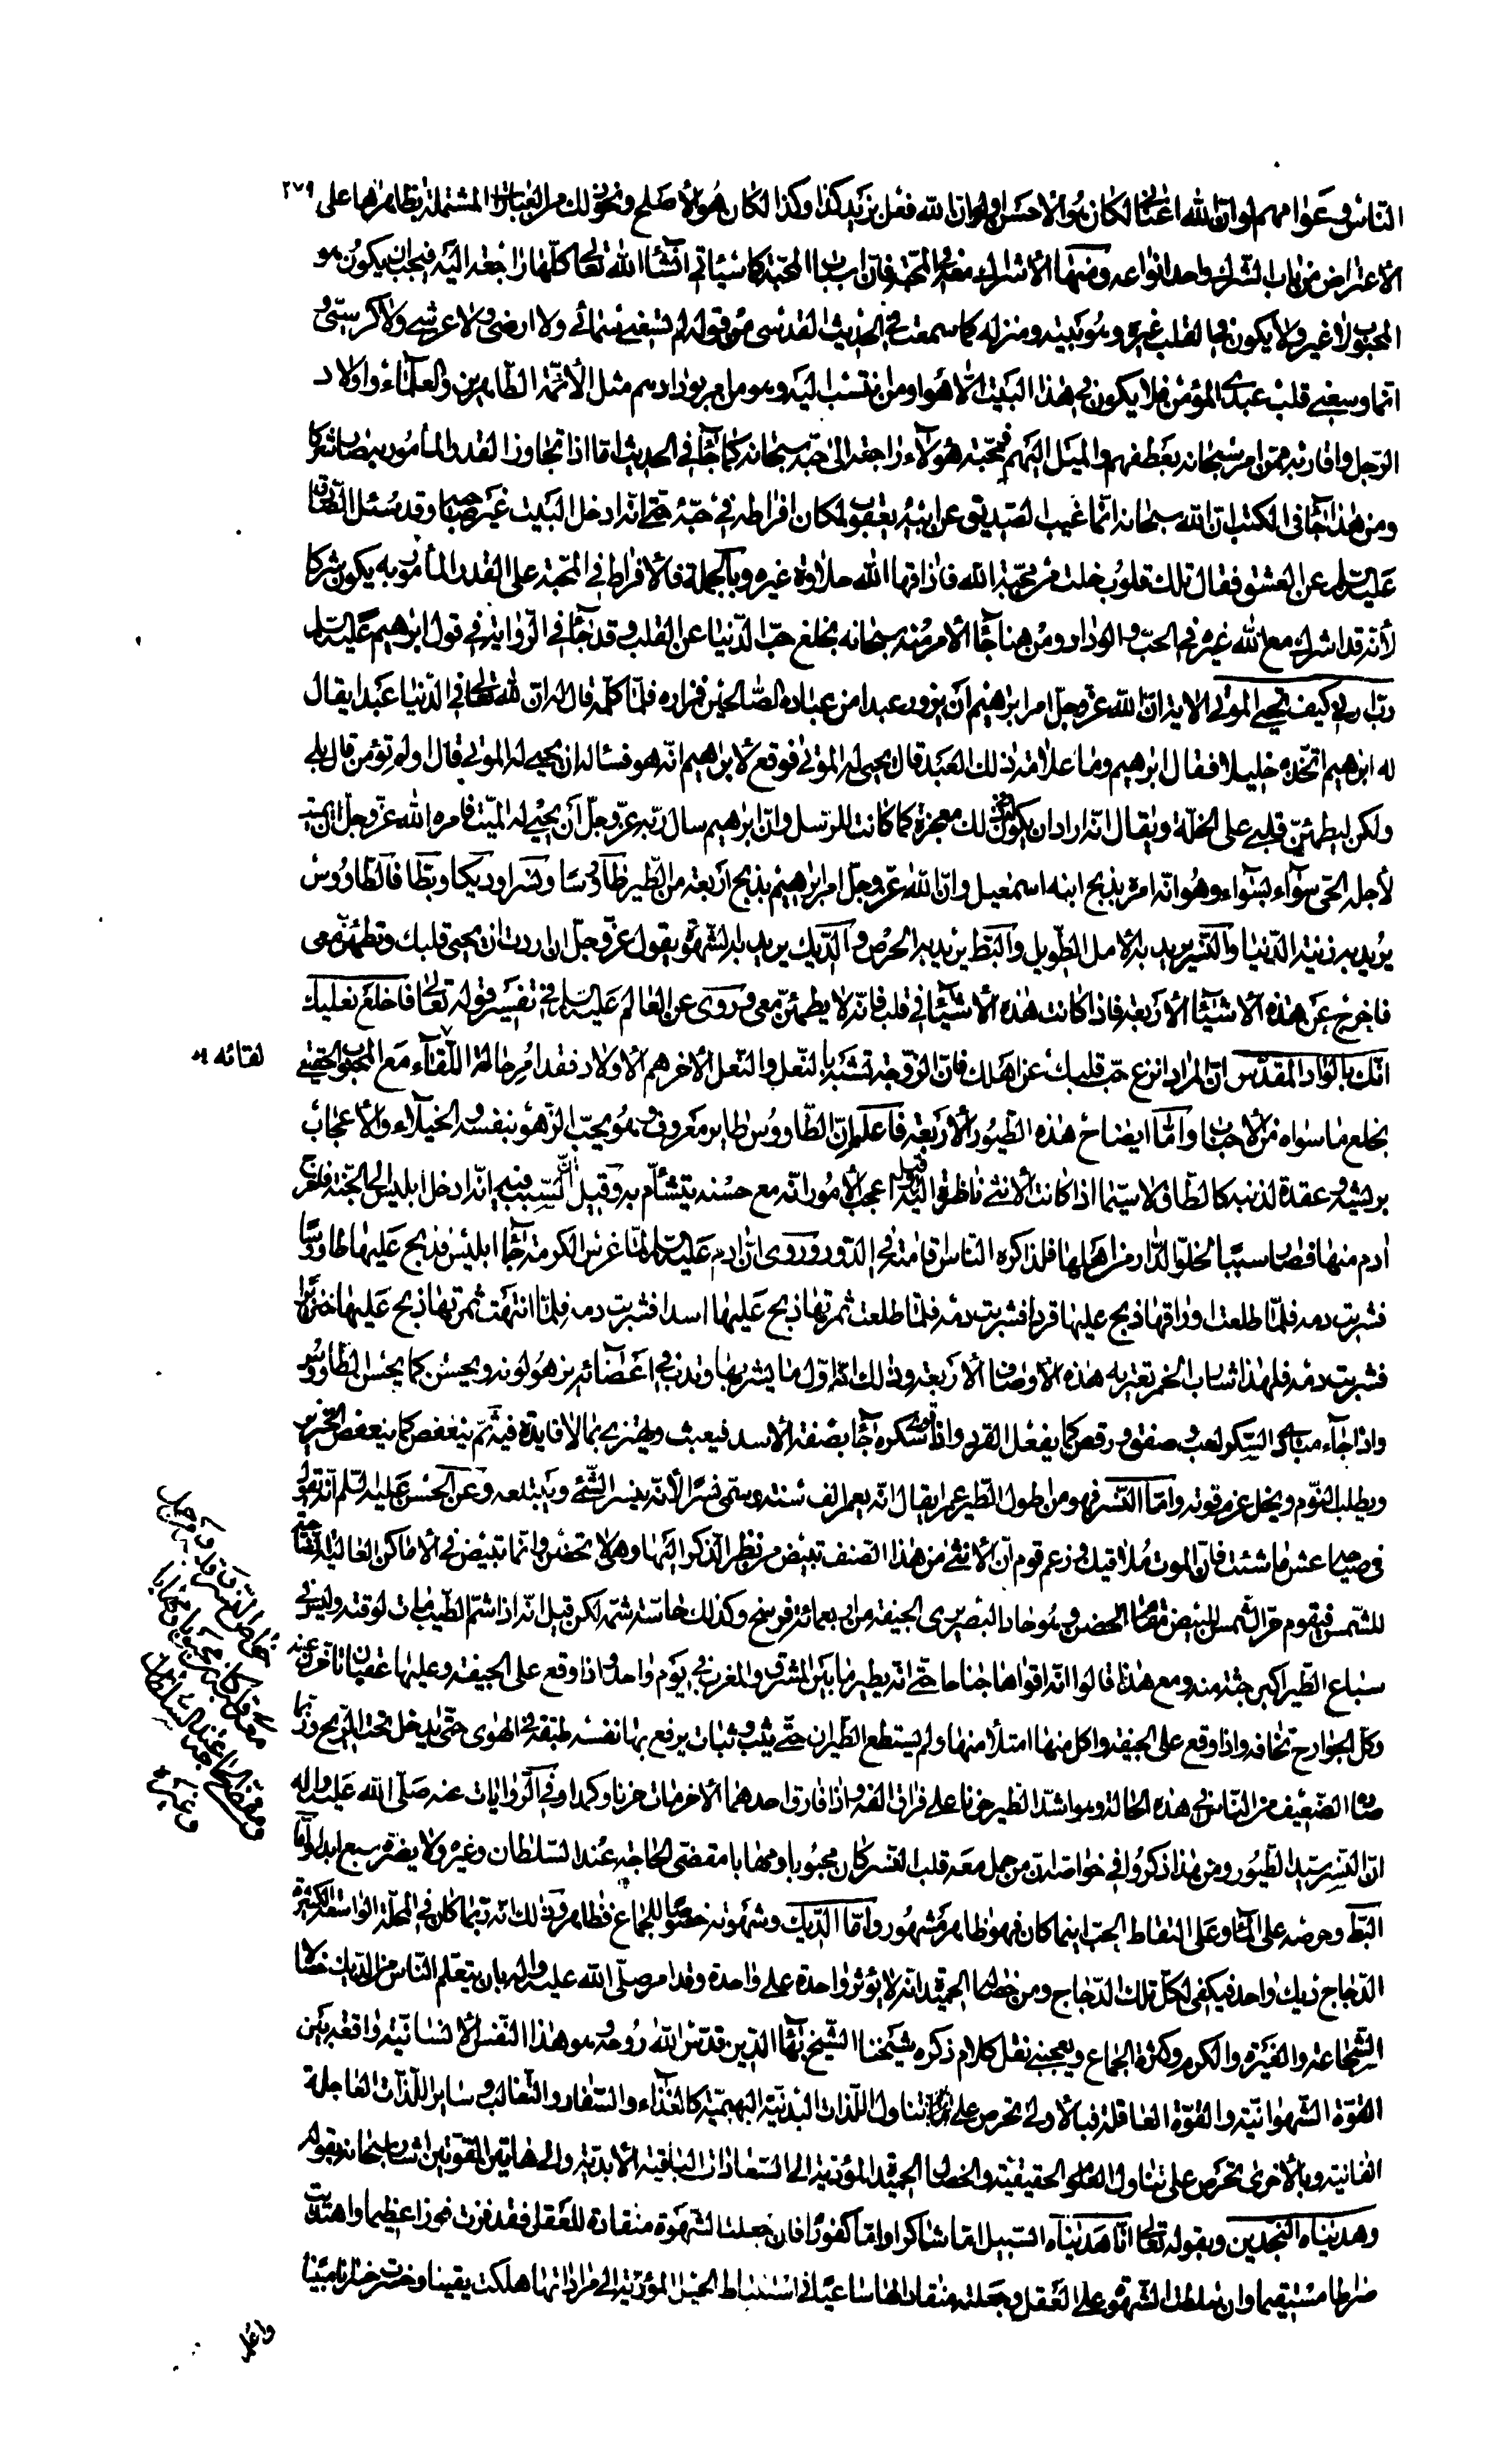 ٢٧٩
الناس وعوامهم لو ان الله اغناني لكان هو الاحسن اولو ان الله فعل بزيد كذا وكذا لكان هو الاصلح ونحو ذلك من العبارات المشتملة بظاهرها على
الاعتراض من باب الشرك واحد انواعه ومنها الاشراك معه في المحبة فان اسباب المحبة كما سيأتي انشاء الله تعالى كلها راجعة اليه فيجب ان يكون هو
المحبوب لا غير ولا يكون في القلب غيره وهو بيته ومنزله كما سمعت في الحديث القدسي من قوله لم تسعني سمائي ولا ارضي ولا عرشي ولا كرسيي و
انما وسعني قلب عبدي المؤمن فلا يكون في هذا البيت الا هو او من انتسب اليه وهو من امر بودادهم مثل الائمة الطاهرين والعلماء واولاد
الرجل واقاربه ممن امر سبحانه بعطفهم والميل اليهم فمحبة هؤلاء راجعة الى حبه سبحانه كما جاء في الحديث اما اذا تجاوز القدر المأمور به صار شركا
ومن هذا جاء في الكتب ان الله سبحانه انما غيب الصديق عن ابيه يعقوب لمكان افراطه في حبه حتى انه ادخل البيت غير صاحبه وقد سئل الصادق
عليه السلم عن العشق فقال تلك قلوب خلت من محبة الله فاذاقها الله حلاوة غيره وبالجملة فالافراط في المحبة على القدر المأمور به يكون شركا
لأنه قد اشرك مع الله غيره في الحب والوداد ومن هنا جاء الامر منه سبحانه بخلع حب الدنيا عن القلب وقد جاء في الرواية في قول ابرهيم عليه السلم
رب ارني كيف تحيي الموتى الاية ان الله عز وجل امر ابرهيم ان يزور عبدا من عباده الصالحين فزاره فلما كلمه قال له ان لله تعالى في الدنيا عبدا يقال
له ابرهيم اتخذه خليلا فقال ابرهيم وما علامة ذلك العبد قال يحيى له الموتى فوقع لابرهيم انه هو فسأله ان يحيي له الموتى قال اولم تؤمن قال بلى
ولكن ليطمئن قلبي على الخلة ويقال انه اراد ان يكون له في ذلك معجزة كما كانت للرسل وان ابرهيم سال ربه عز وجل أن يحيي له الميت فامره الله عز وجل ان يميت
لأجله الحي سواء بسواء وهو انه امره بذبح ابنه اسمعيل وان الله عز وجل امر ابرهيم بذبح اربعة من الطير طاووسا ونسرا وديكا وبطا فالطاووس
يريد به زينة الدنيا والنسر يريد به الامل الطويل والبط يريد به الحرص والديك يريد به الشهوة يقول عز وجل ان اردت ان يحيى قلبك وتطمئن معي
فاخرج عن هذه الاشياء الاربعة فاذا كانت هذه الاشياء في قلب فانه لا يطمئن معي وروى عن العالم عليه السلم في تفسير قوله تعالى فاخلع نعليك
انك بالواد المقدس ان المراد انزع حب قلبك عن اهلك فان الزوجة تشبه بالنعل والنعل الاخر هم الاولاد فقد امر حالة اللقاء مع المحبوب الحقيقي
لقائه
بخلع ما سواه من الاحباب واما ايضاح هذه الطيور الاربعة فاعلم ان الطاووس طاير معروف وهو يحب الزهو بنفسه والخيلاء والاعجاب
بريشه وعقده لذنبه كالطاق لا سيما اذا كانت الانثى ناظرة اليه واعجب الامور انه مع حسنه يتشأم به وقيل ان السبب فيه انه ادخل ابليس الى الجنة فاخرج
ادم منها فصار سببا لخلو الدار من اهلها فلذا كره الناس اقامته في الدور وروى ان ادم عليه السلم لما غرس الكرمة جاء ابليس فذبح عليها طاووسا
فشربت دمه فلما طلعت اوراقها ذبح عليها قردا فشربت دمه فلما طلعت ثمرتها ذبح عليها اسدا فشربت دمه فلما انتهت ثمرتها ذبح عليها خنزيرا
فشربت دمه فلهذا شارب الخمر تعتريه هذه الاوصاف الاربعة وذلك انه اول ما يشربها وتدب في اعضائه يزهو لونه ويحسن كما يحسن الطاووس
واذا جاء مبادى السكر لعب وصفق ورقص كما يفعل القرد واذا قوى سكره جاء بصفة الاسد فيعبث ويهذي بما لا فايدة فيه ثم يتقعص كما يتقعص الخنزير
ويطلب النوم ويخل عزم قوته واما النسر فهو من اطول الطير عمرا يقال انه يعمر الف سنة وسمى نسرا لأنه ينسر الشئ ويبتلعه وعن الحسن عليه السلم انه يقول
في صياحه عش ما شئت فان الموت ملاقيك وزعم قوم ان الانثى من هذا الصنف تبيض من نظر الذكر اليها وهي لا تحضن وانما تبيض في الاماكن العالية الضاحية
للشمس فيقوم حر الشمس للبيض مقام الحضن وهو حاد البصر يرى الجيفة من اربعمائة فرسخ وكذلك حاسة شمه لكن قيل انه اذا شم الطيب مات لوقته وليس في
سباع الطير اكبر جثة منه ومع هذا قالوا انه اقواها جناحا حتى انه يطير ما بين المشرق والمغرب في يوم واحد واذا وقع على الجيفة وعليها عقبان تأخرن عنه
وكل الجوارح تخافه واذا وقع على الجيفة واكل منها امتلأ منها ولم يستطع الطيران حتى يثب وثبات يرفع بها نفسه طبقة في الهوى حتى يدخل تحت الريح وربما
صاده الضعيف من الناس في هذه الحالة وهو اشد الطير حزنا على فراق الفه واذا فارق احدهما الاخر مات حزنا وكمدا وفي الروايات عنه صلى الله عليه واله
ان النسر سيد الطيور ومن هذا ذكروا في خواصه ان من حمل معه قلب النسر كان محبوبا ومهابا مقضى الحاجة عند السلطان وغيره ولا يضره سبع ابدا واما
البط وحرصه على الماء وعلى التقاط الحب اينما كان فهو ظاهر مشهور واما الديك وشهوته خصوصا للجماع فظاهر وذلك انه ربما كان في المحلة الواسعة الكثيرة
الدجاج ديك واحد فيكفي لكل تلك الدجاج ومن خصاله الحميدة انه لا يوثر واحدة على واحدة وقد امر صلى الله عليه واله بان يتعلم الناس من الديك خصالا
الشجاعة والغيرة والكرم وكثرة الجماع ويعجبني نقل كلام ذكره شيخنا الشيخ بهاء الدين قدس الله روحه وهو هذا النفس الانسانية واقعة بين
القوة الشهوانية والقوة العاقلة فبالاولى تحرص على تناول اللذات البدنية البهيمية كالغذاء والسفاد والتغالب وساير اللذات العاجلة
الفانية وبالاخرى تحرص على تناول العلوم الحقيقية والخصال الحميدة المؤدية الى السعادات الباقية الابدية والى هاتين القوتين اشار سبحانه بقوله
وهديناه النجدين وبقوله تعالى انا هديناه السبيل اما شاكرا واما كفورا فان جعلت الشهوة منقادة للعقل فقد فزت فوزا عظيما واهتديت
صراطا مستقيما وان سلطت الشهوة على العقل وجعلته منقادا لها ساعيا في استنباط الحيل المؤدية الى مراداتها هلكت يقينا وخسرت خسرانا مبينا
واعلم